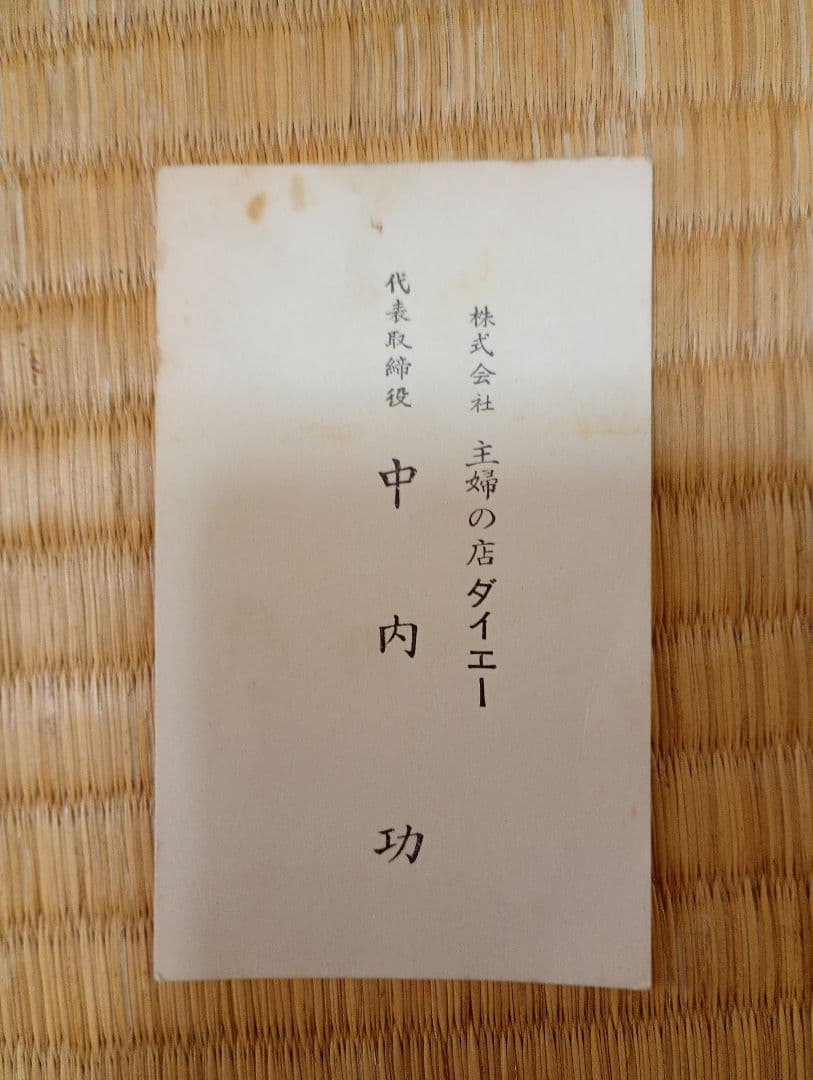 株式会社 主婦の店ダイエー
代表取締役 中内功